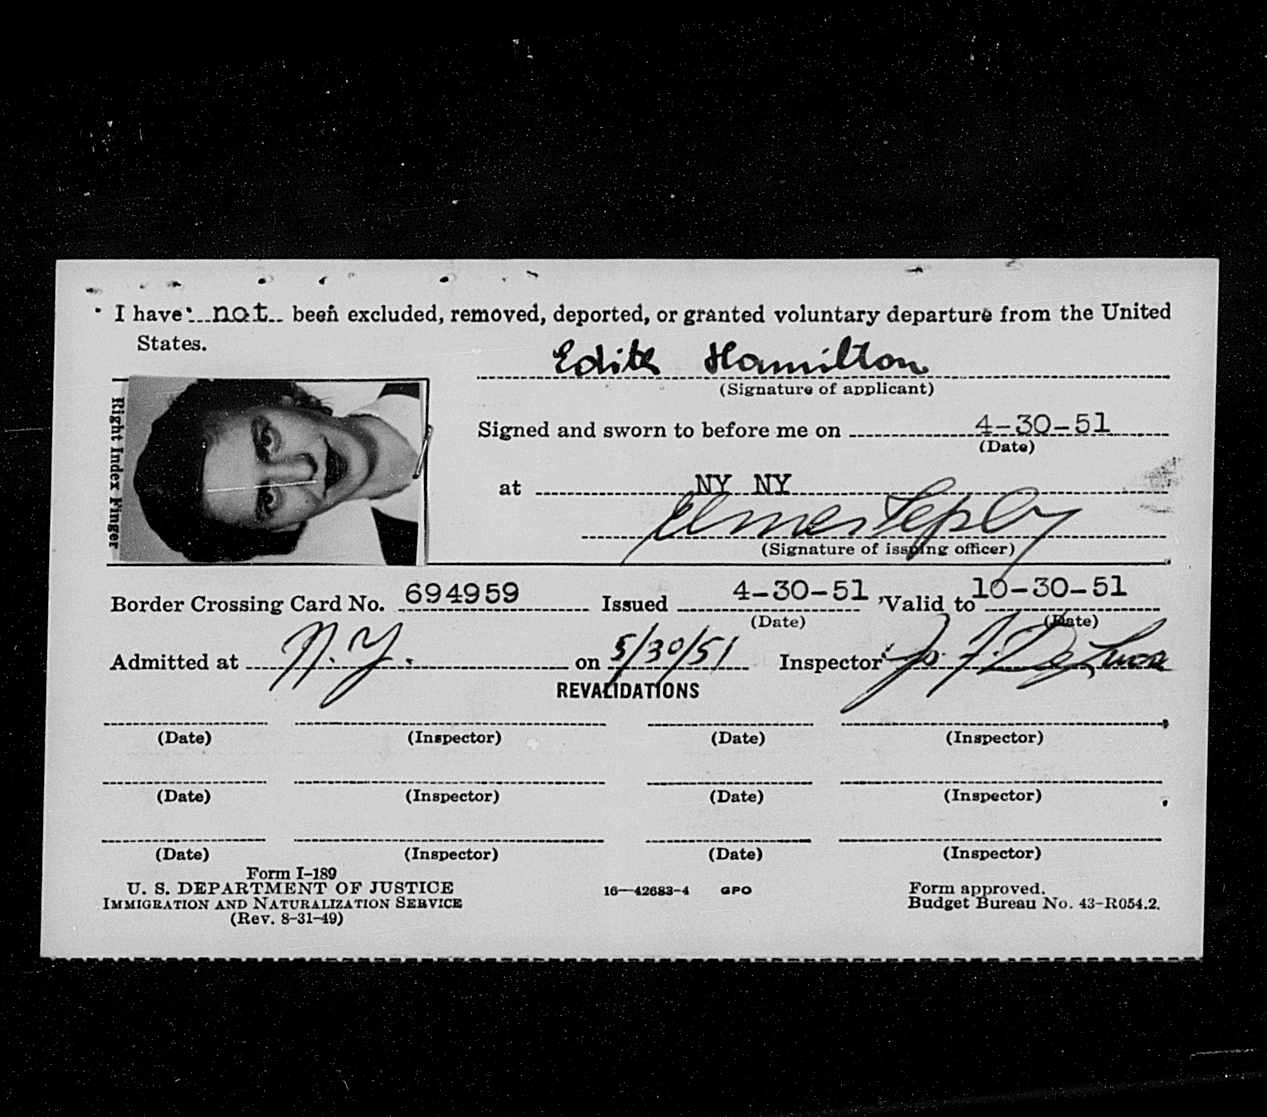 I have not been excluded, removed, deported, or granted voluntary departure from the United
States.
Edith Hamilton
(Signature of applicant)
Right Index Finger
Signed and sworn to before me on 4-30-51
(Date)
at NY NY
Elmer
(Signature of issuing officer)
Border Crossing Card No. 694959 Issued 4-30-51 Valid to 10-30-51
(Date) (Date)
Admitted at N.Y. on 5/30/51 Inspector
REVALIDATIONS
(Date) (Inspector) (Date) (Inspector)
(Date) (Inspector) (Date) (Inspector)
(Date) (Inspector) (Date) (Inspector)
Form I-189
U. S. DEPARTMENT OF JUSTICE
IMMIGRATION AND NATURALIZATION SERVICE
(Rev. 8-31-49)
16—42683-4 GPO
Form approved.
Budget Bureau No. 43-R054.2.